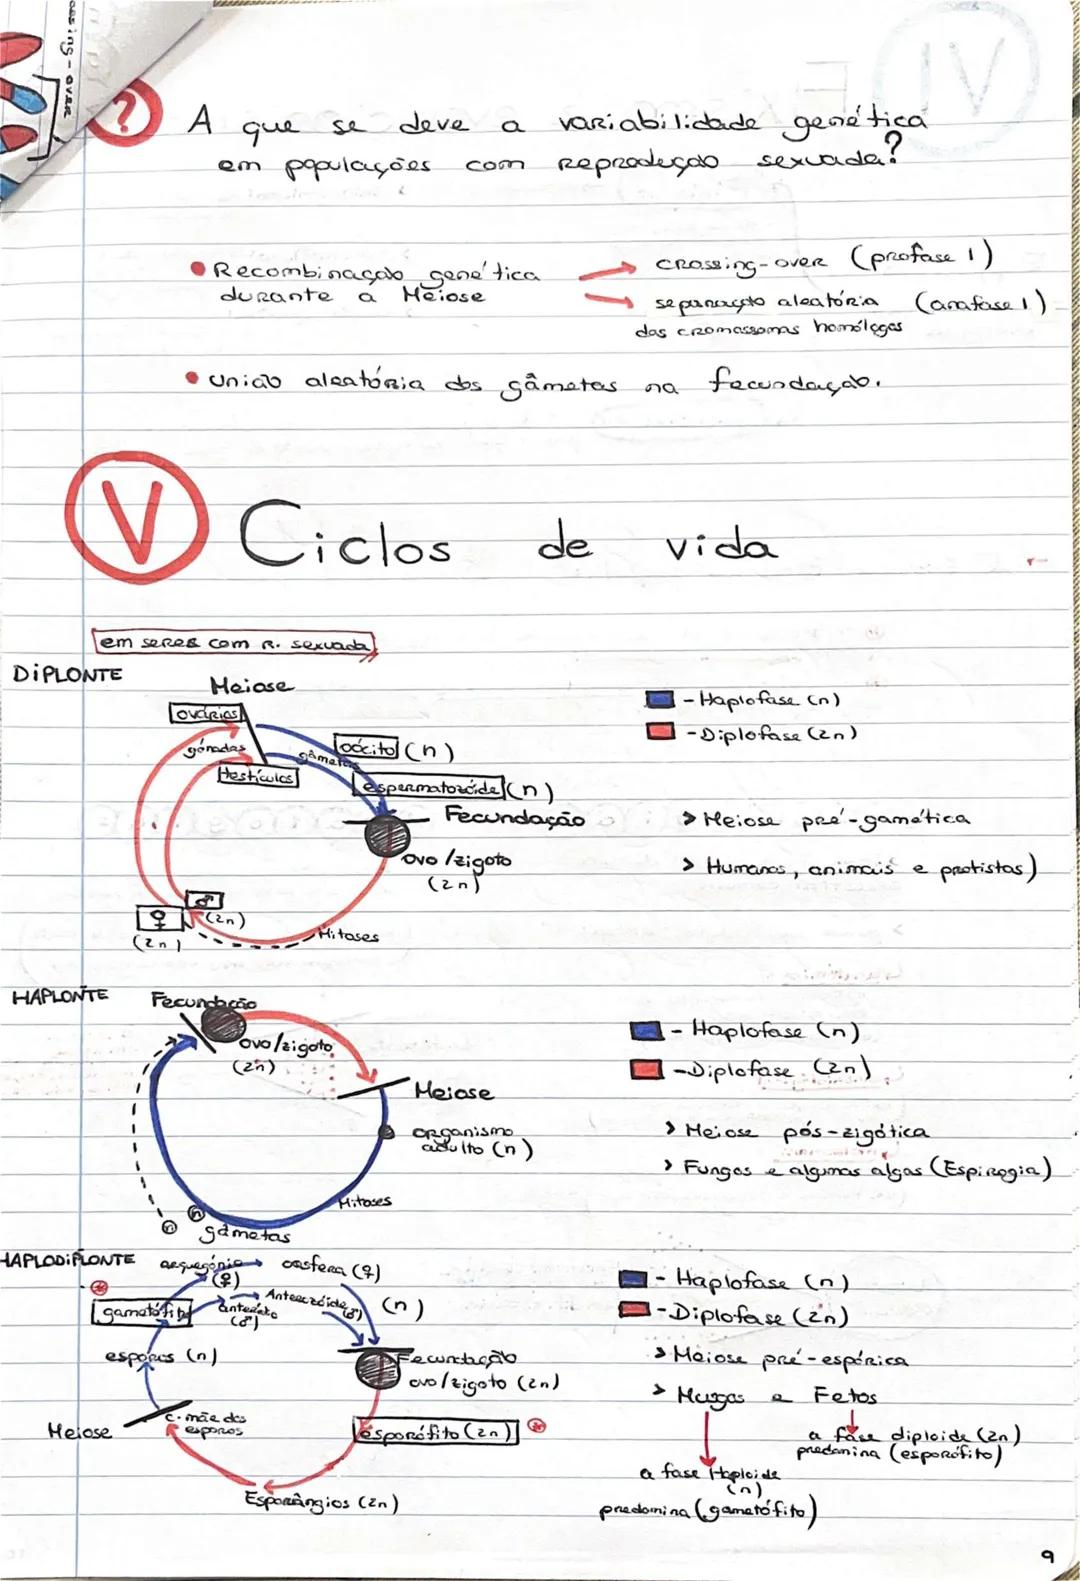 ossing-over
?
A que se deve a variabilidade genética
em populações com reprodução sexuada?
• Recombinação genética
durante a Meiose
crossing-over (profase 1)
separação aleatória (anafase 1)
das cromossomas homólogos
• União aleatória dos gâmetas na fecundação.
V Ciclos de vida
em seres com R. sexuada
DIPLONTE
Meiose
ovários
gónadas
testículos
gâmetas
oócito (n)
espermatozóide (n)
Fecundação
ovo/zigoto
(2n)
♂
(2n)
♀
(2n)
Mitoses
- Haplofase (n)
- Diplofase (2n)
> Meiose pré-gamética
> Humanos, animais e protistas)
HAPLONTE
Fecundação
ovo/zigoto
(2n)
Meiose
organismo
adulto (n)
Mitoses
n
n
gâmetas
- Haplofase (n)
- Diplofase (2n)
> Meiose pós-zigótica
> Fungos e algumas algas (Espirogia)
HAPLODIPLONTE
arquegónio
(♀)
oosfera (♀)
gametófito
anterídio
(♂)
Anterozóide (♂)
(n)
esporos (n)
Fecundação
ovo/zigoto (2n)
Meiose
c. mãe dos
esporos
esporófito (2n)
Esporângios (2n)
- Haplofase (n)
- Diplofase (2n)
> Meiose pré-espórica
> Musgos e Fetos
a fase diploide (2n)
predomina (esporófito)
a fase Haploide
(n)
predomina (gametófito)
9